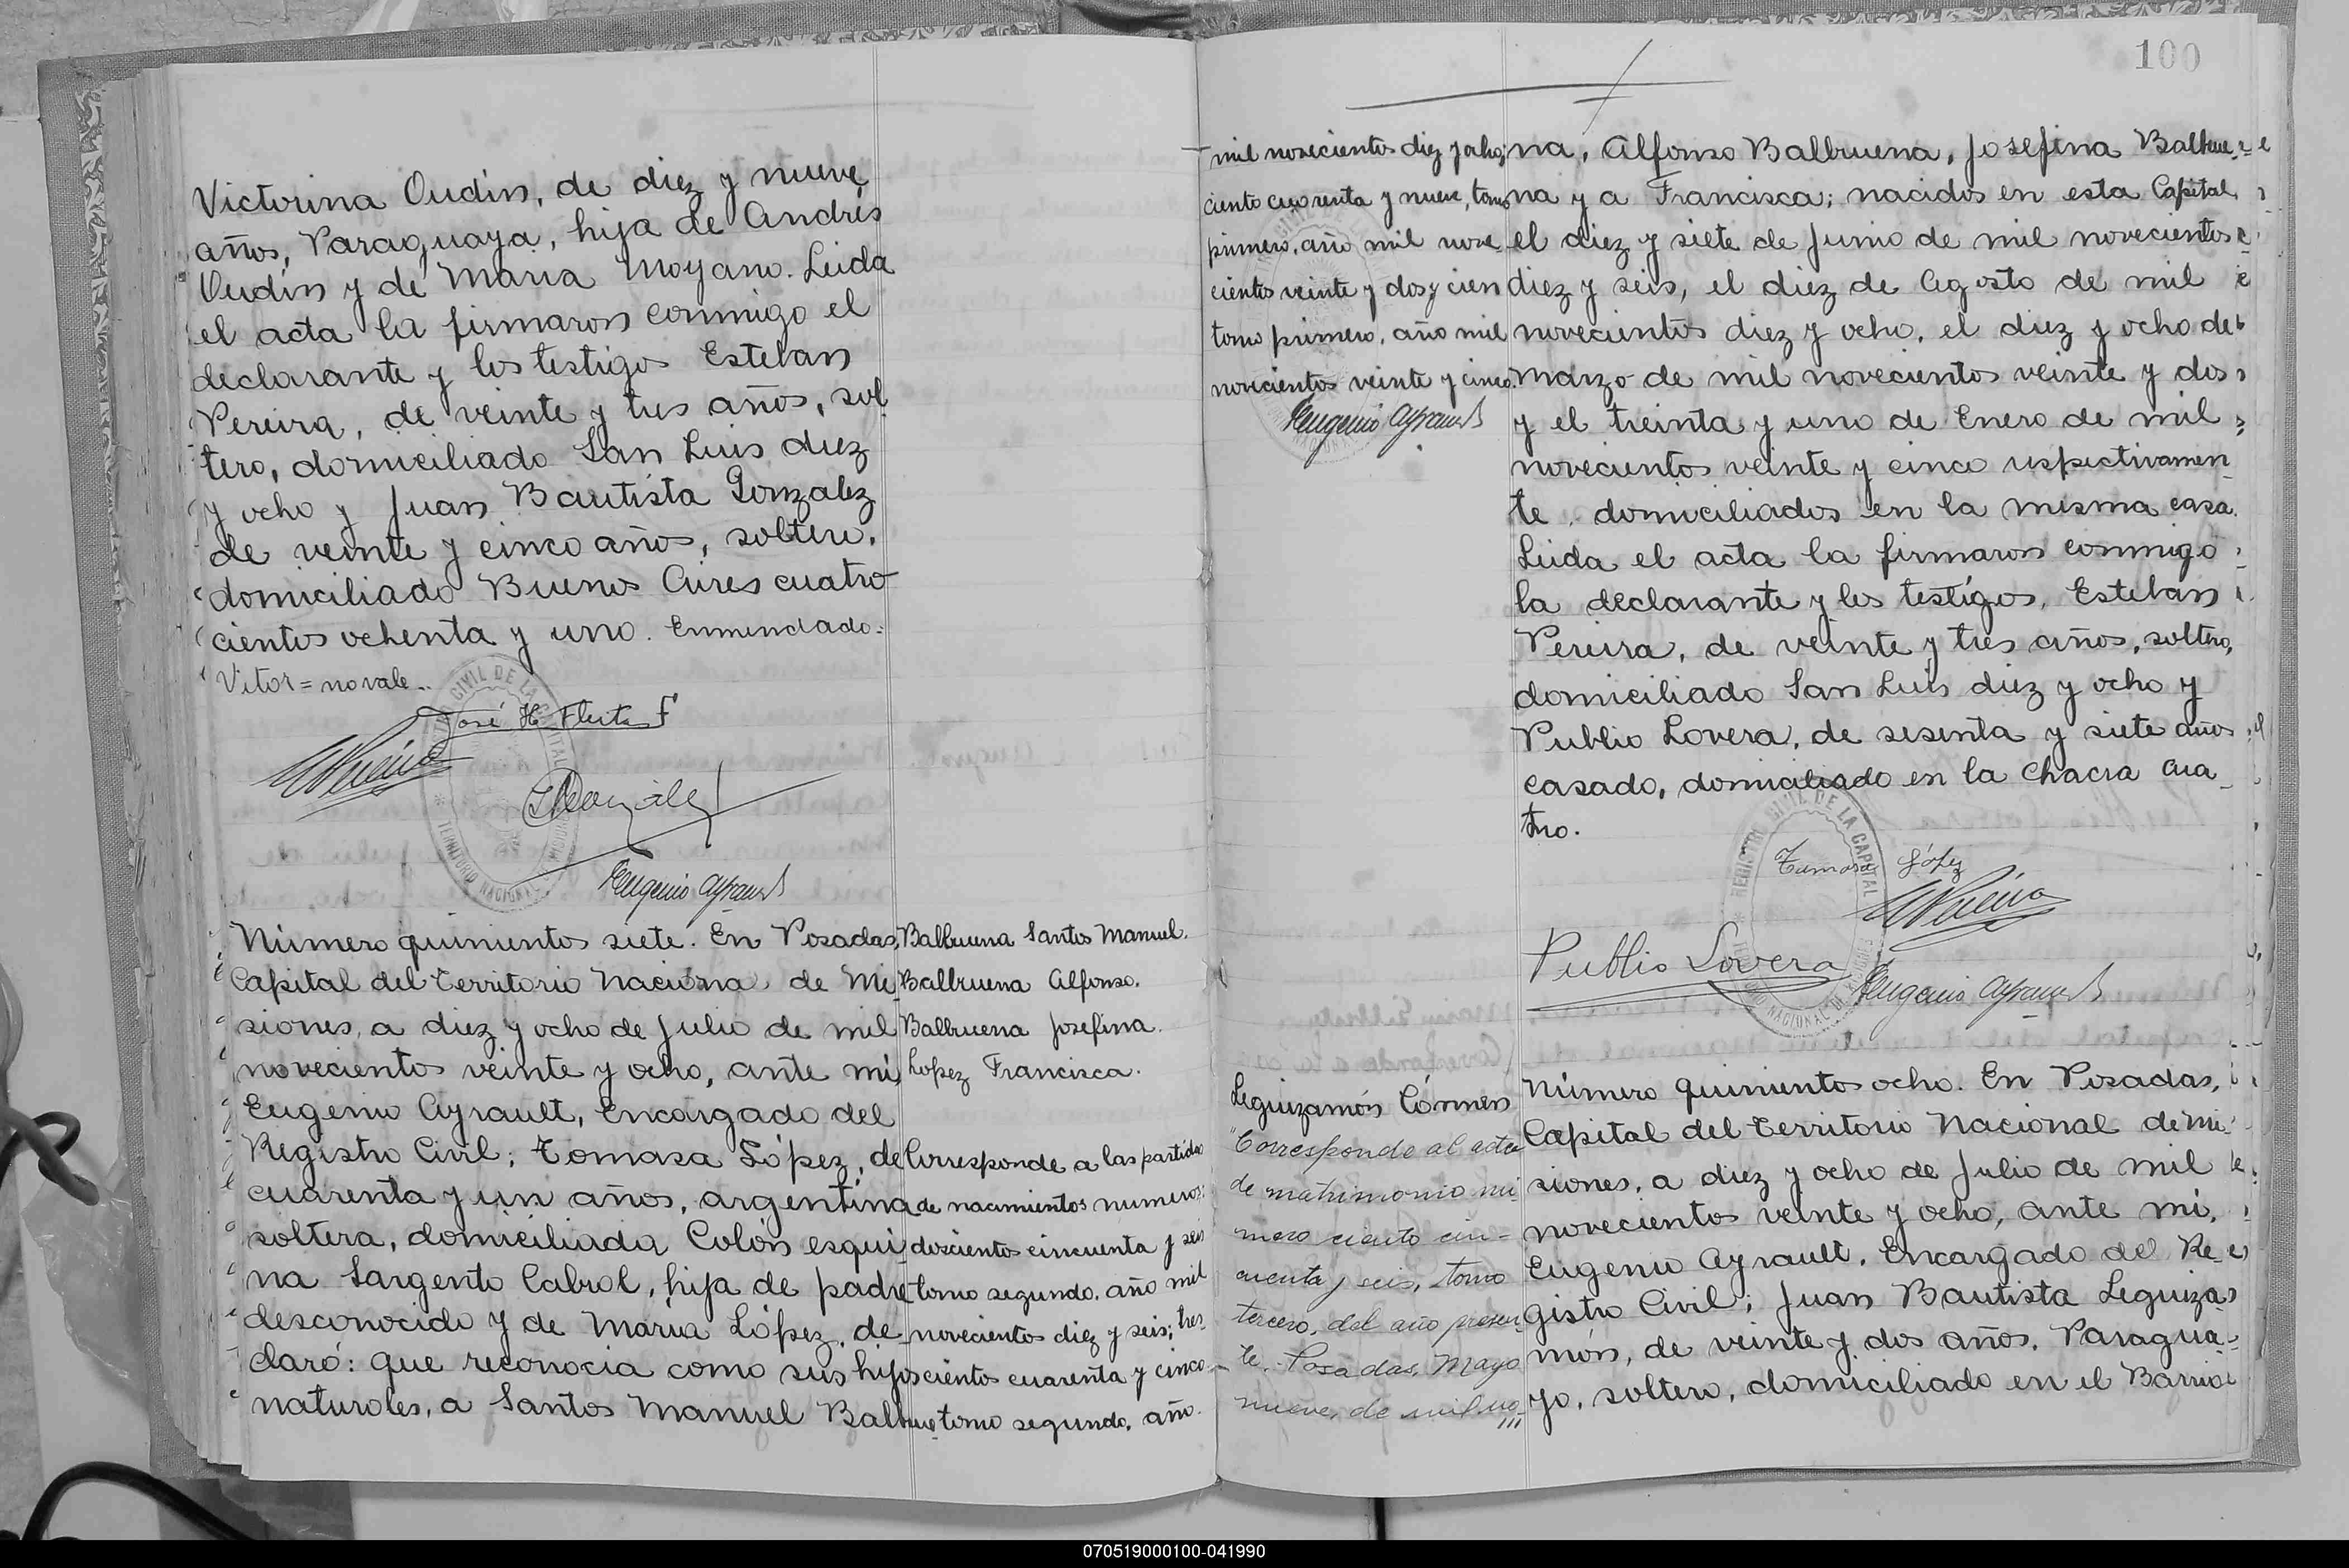 Victorina Oudín, de diez y nueve
años, Paraguaya, hija de Andrés
Oudín y de María Moyano. Leida
el acta la firmaron conmigo el
declarante y los testigos Esteban
Pereira, de veinte y tres años, sol
tero, domiciliado San Luis diez
y ocho y Juan Bautista Gonzalez
de veinte y cinco años, soltero,
domiciliado Buenos Aires cuatro
cientos ochenta y uno. Enmendado:
Vitor = no vale.
José H. Fleita F
Eugenio Ayrault
Número quinientos siete. En Posadas,
Capital del Territorio Naciona de Mi
siones, a diez y ocho de Julio de mil
novecientos veinte y ocho, ante mí,
Eugenio Ayrault, Encargado del
Registro Civil; Tomasa López, de
cuarenta y un años, argentina
soltera, domiciliada Colón esqui
na Sargento Cabral, hija de padre
desconocido y de María López, de
claró: que reconocia como sus hijos
naturales, a Santos Manuel Balbue
Balbuena Santos Manuel.
Balbuena Alfonso.
Balbuena Josefina.
Lopez Francisca.
Corresponde a las partidas
de nacimientos numeros:
doscientos cincuenta y seis
tomo segundo, año mil
novecientos diez y seis; tres
cientos cuarenta y cinco
tomo segundo, año
100
mil novecientos diez y ocho;
ciento cuarenta y nueve, tomo
primero, año mil nove
cientos veinte y dos y cien
tomo primero, año mil
novecientos veinte y cinco.
Eugenio Ayrault
na, Alfonso Balbruena, Josefina Balbue
na y a Francisca; nacidos en esta Capital
el diez y siete de Junio de mil novecientos
diez y seis, el diez de Agosto de mil
novecientos diez y ocho, el diez y ocho de
Marzo de mil novecientos veinte y dos
y el treinta y uno de Enero de mil
novecientos veinte y cinco respectivamen
te, domiciliados en la misma casa.
Leida el acta la firmaron conmigo
la declarante y los testigos, Esteban
Pereira, de veinte y tres años, soltero,
domiciliado San Luis diez y ocho y
Publio Lovera, de sesenta y siete años
casado, domiciliado en la Chacra cua
tro.
Tomasa López
Publio Lovera
Eugenio Ayrault
Leguizamón Cármen
Corresponde al acta
de matrimonio nú-
mero ciento cin-
cuenta y seis, tomo
tercero, del año presen-
te. Posadas, Mayo
nueve, de mil no
Número quinientos ocho. En Posadas,
Capital del Territorio Nacional de Mi
siones, a diez y ocho de Julio de mil
novecientos veinte y ocho, ante mí,
Eugenio Ayrault, Encargado del Re
gistro Civil; Juan Bautista Leguiza
món, de veinte y dos años, Paragua-
yo, soltero, domiciliado en el Barrio
070519000100-041990